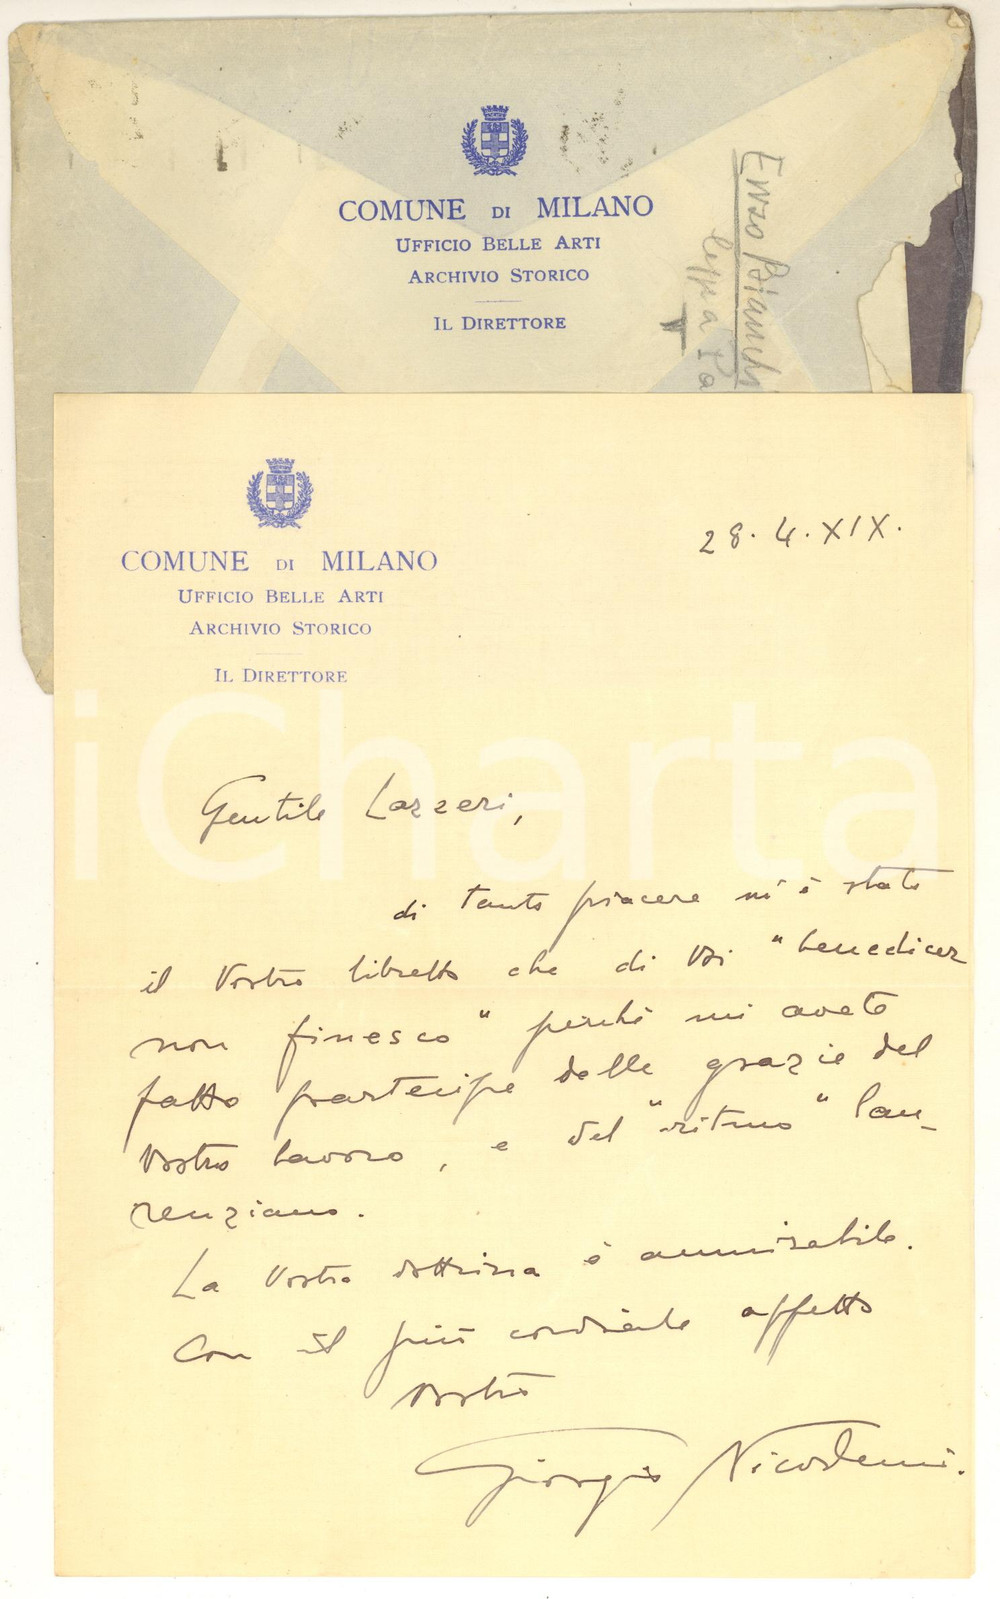 COMUNE DI MILANO
UFFICIO BELLE ARTI
ARCHIVIO STORICO
IL DIRETTORE
Enzo Bianchi
COMUNE DI MILANO
UFFICIO BELLE ARTI
ARCHIVIO STORICO
IL DIRETTORE
28. 4. XIX.
iCharta
Gentile Lazzeri,
di tanto piacere mi è stato
il Vostro libretto che di Voi "benedicer
non finesco" perché mi avete
fatto partecipe delle grazie del
Vostro lavoro, e del "ritmo" lau-
renziano.
La Vostra dottrina è ammirabile.
Con il più cordiale affetto
Vostro
Giorgio Nicodemi.